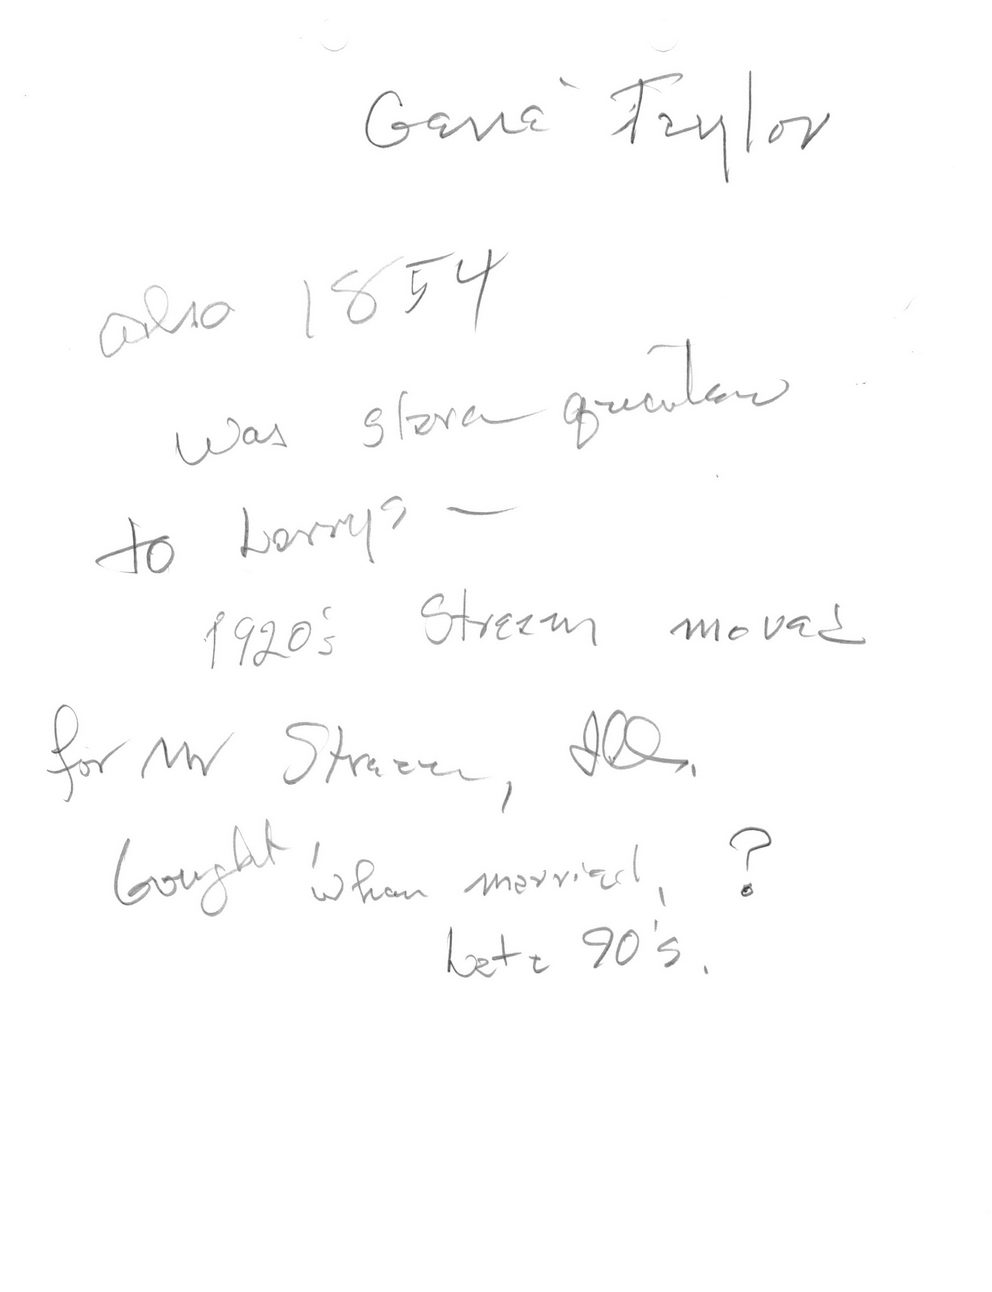 Gene Taylor
also 1854
was slave quarters
to Larrys —
1920's Stream moved
for Mr
bought, when married, ?
Late 90's.